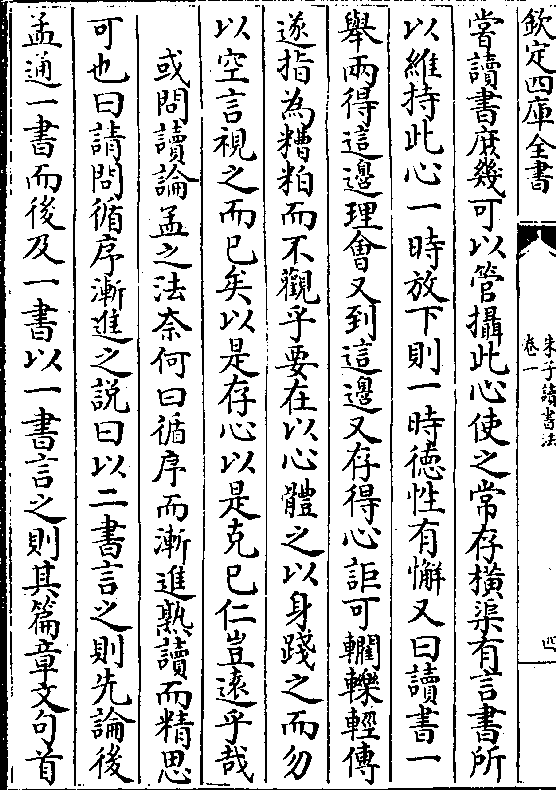 欽定四庫全書
朱子讀書法
卷一
四
嘗讀書庶幾可以管攝此心使之常存橫渠有言書所
以維持此心一時放下則一時德性有懈又曰讀書一
舉兩得這邊理會又到這邊又存得心詎可轥轢輕傳
遂指為糟粕而不觀乎要在以心體之以身踐之而勿
以空言視之而已矣以是存心以是克己仁豈遠乎哉
或問讀論孟之法奈何曰循序而漸進熟讀而精思
可也曰請問循序漸進之説曰以二書言之則先論後
孟通一書而後及一書以一書言之則其篇章文句首